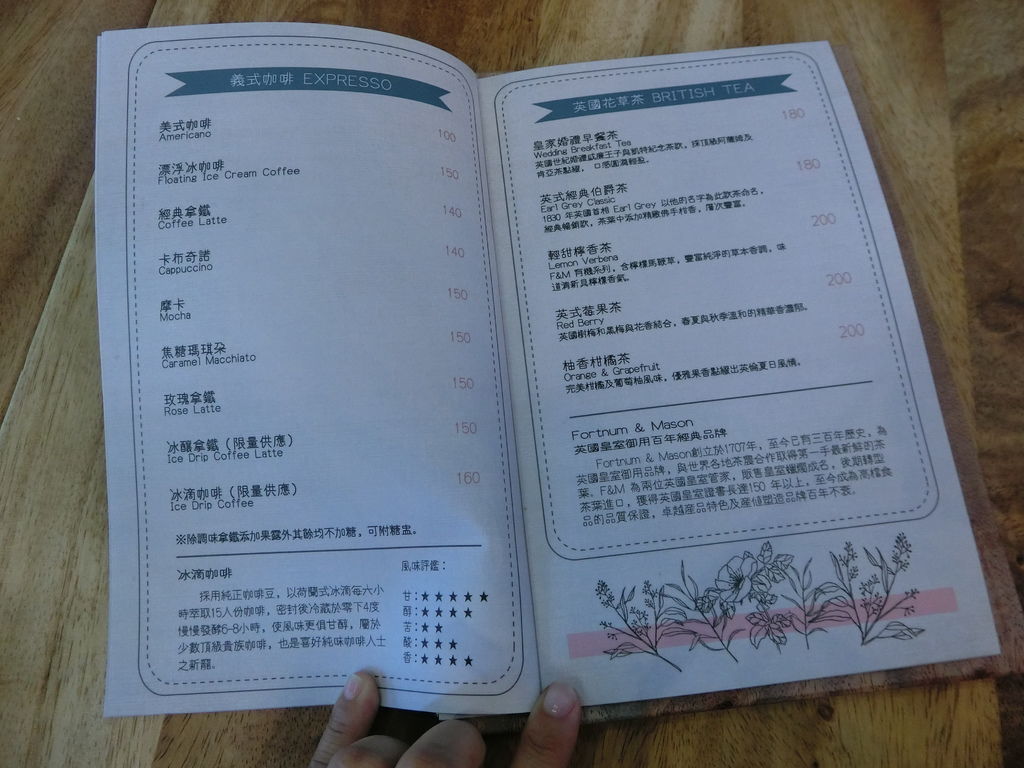 義式咖啡 EXPRESSO
美式咖啡
Americano
100
漂浮冰咖啡
Floating Ice Cream Coffee
150
經典拿鐵
Coffee Latte
140
卡布奇諾
Cappuccino
140
摩卡
Mocha
150
焦糖瑪琪朵
Caramel Macchiato
150
玫瑰拿鐵
Rose Latte
150
冰釀拿鐵（限量供應）
Ice Drip Coffee Latte
150
冰滴咖啡（限量供應）
Ice Drip Coffee
160
※除調味拿鐵添加果露外其餘均不加糖，可附糖盅。
冰滴咖啡
採用純正咖啡豆，以荷蘭式冰滴每六小
時萃取15人份咖啡，密封後冷藏於零下4度
慢慢發酵6-8小時，使風味更俱甘醇，屬於
少數頂級貴族咖啡，也是喜好純味咖啡人士
之新寵。
風味評鑑：
甘：★★★★★
醇：★★★★
苦：★★
酸：★★★
香：★★★★
英國花草茶 BRITISH TEA
皇家婚禮早餐茶
180
Wedding Breakfast Tea
英國世紀婚禮威廉王子與凱特紀念茶款，採頂級阿薩姆及
肯亞茶點綴，口感圓滿輕盈。
英式經典伯爵茶
180
Earl Grey Classic
1830 年英國首相 Earl Grey 以他的名字為此款茶命名，
經典暢銷款，茶葉中添加精緻佛手柑香，層次豐富。
輕甜檸香茶
200
Lemon Verbena
F&M 有機系列，含檸檬馬鞭草，豐富純淨的草本香調，味
道清新具檸檬香氣。
英式莓果茶
200
Red Berry
英國樹梅和黑梅與花香結合，春夏與秋季溫和的精華香濃郁。
柚香柑橘茶
200
Orange & Grapefruit
完美柑橘及葡萄柚風味，優雅果香點綴出英倫夏日風情。
Fortnum & Mason
英國皇室御用百年經典品牌
Fortnum & Mason創立於1707年，至今已有三百年歷史，為
英國皇室御用品牌，與世界各地茶農合作取得第一手最新鮮的茶
葉。F&M 為兩位英國皇室管家，販售皇室蠟燭成名，後期轉型
茶葉進口，獲得英國皇室證書長達150 年以上，至今成為高檔食
品的品質保證，卓越產品特色及產値塑造品牌百年不衰。